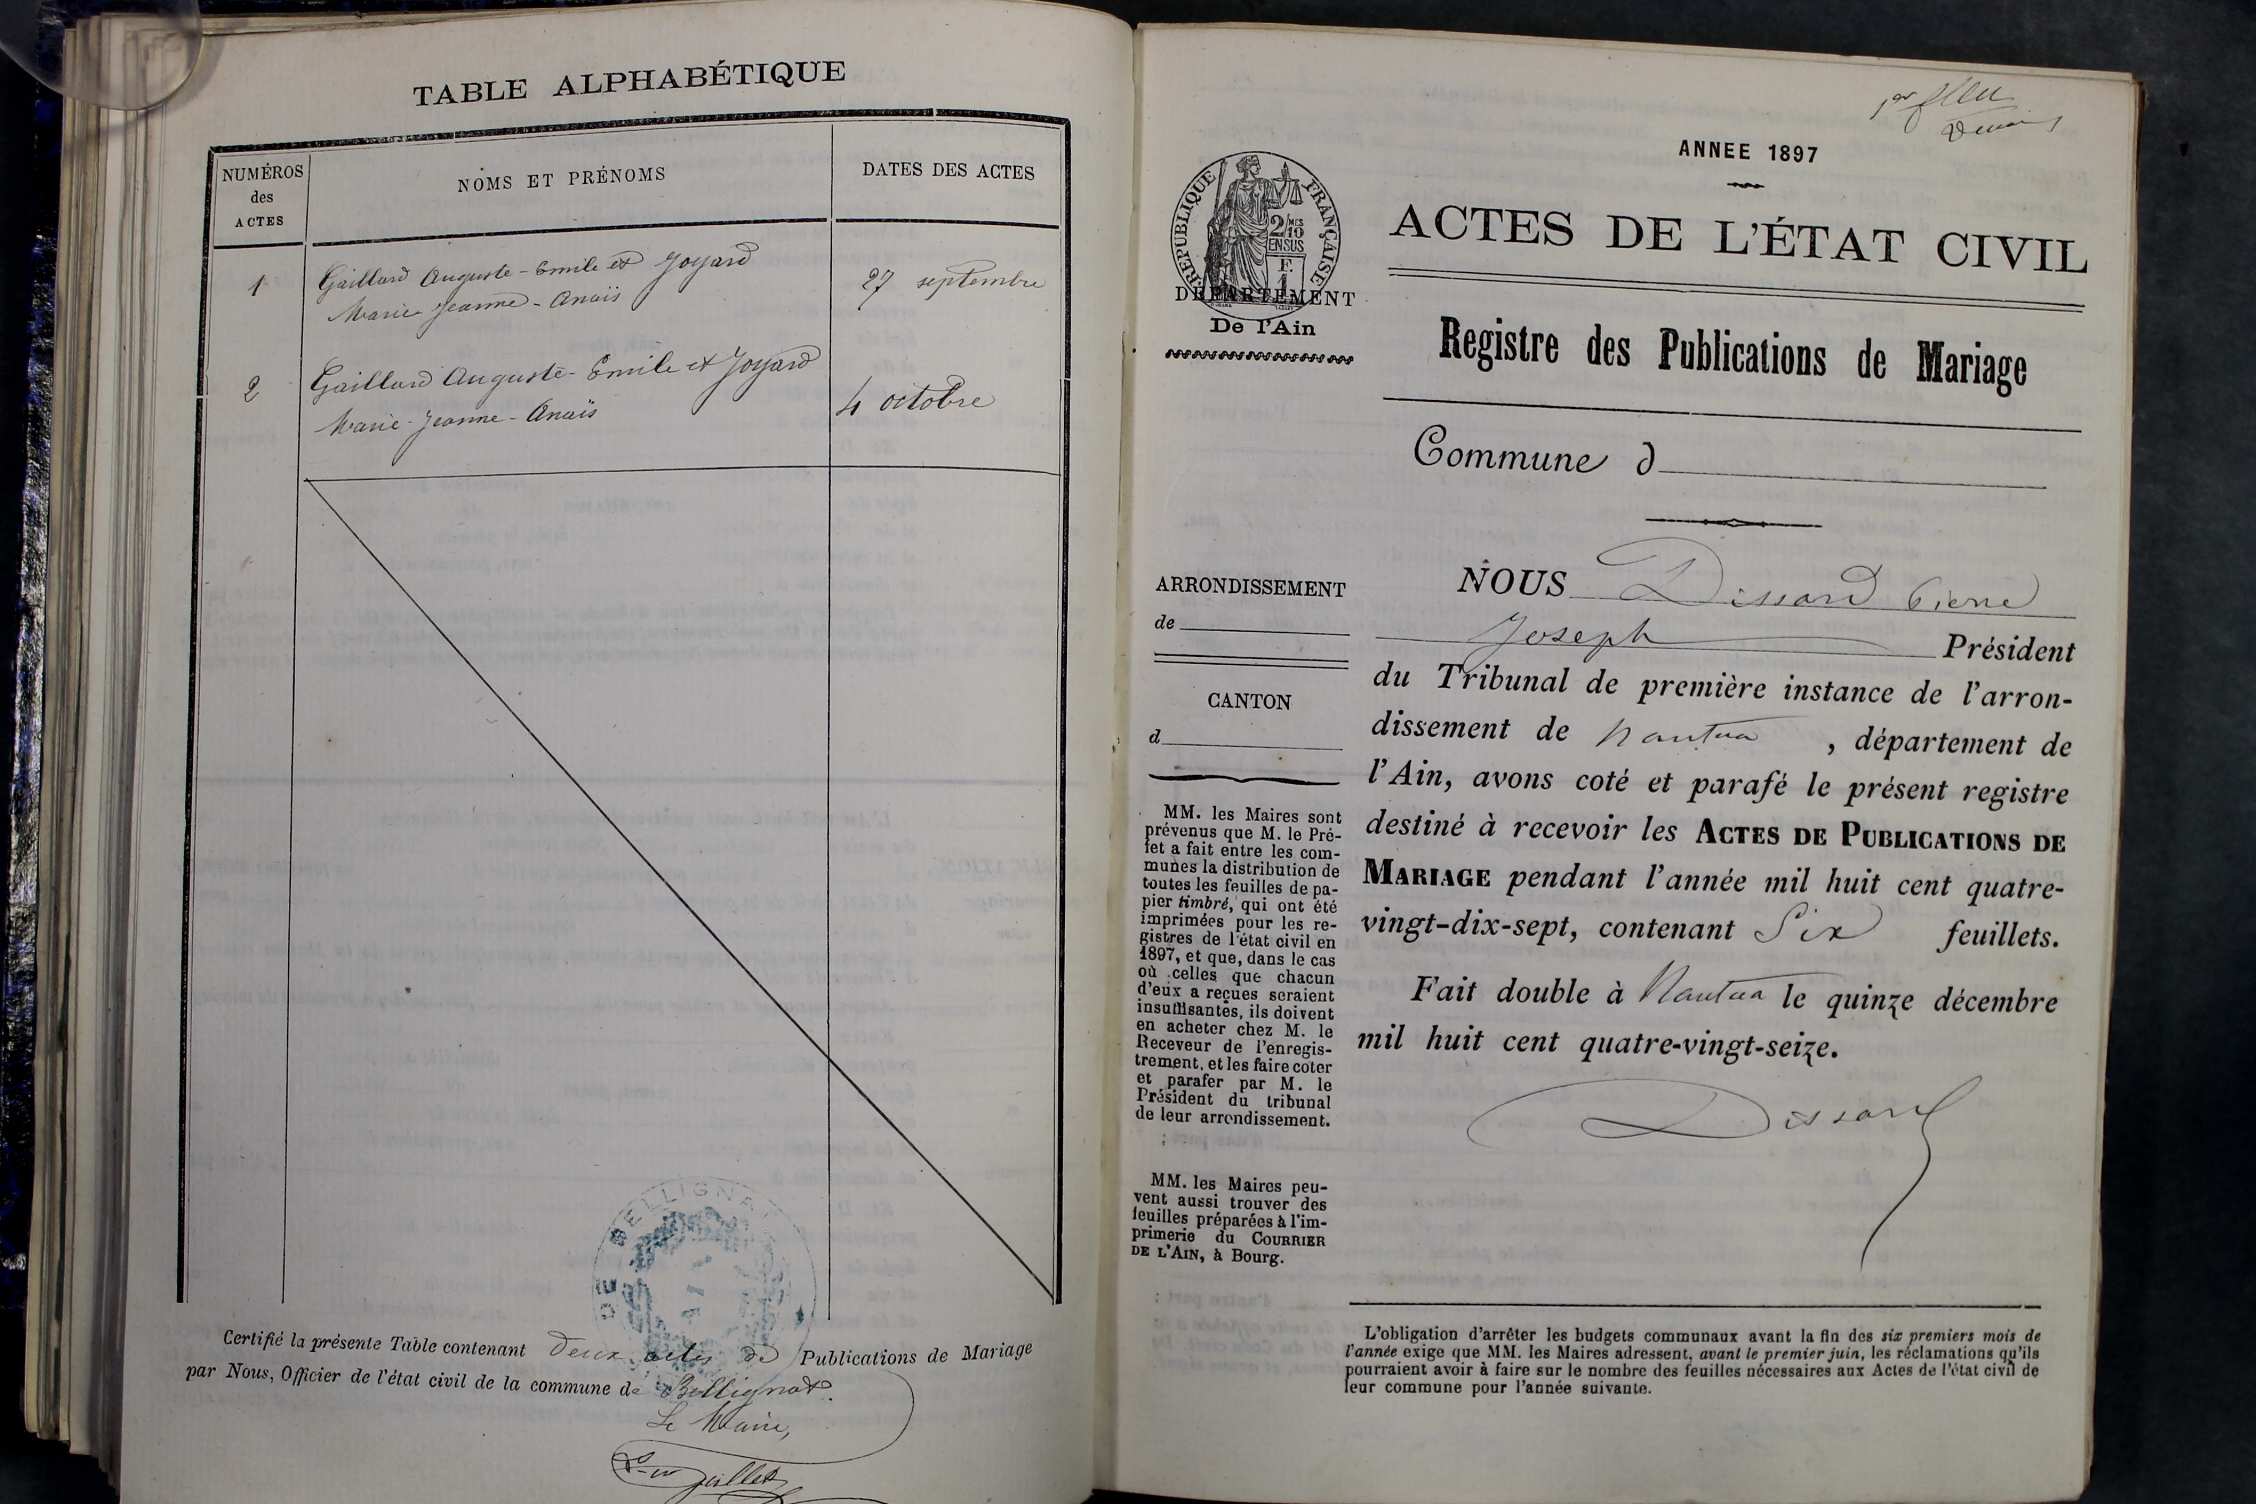 TABLE ALPHABÉTIQUE
NUMÉROS
des
ACTES
NOMS ET PRÉNOMS
DATES DES ACTES
1
Gaillard Auguste-Emile et Joyard
Marie Jeanne-Anaïs
27 septembre
2
Gaillard Auguste-Emile et Joyard
Marie-Jeanne-Anaïs
4 octobre
DE BELLIGNAT
Certifié la présente Table contenant deux actes de Publications de Mariage
par Nous, Officier de l'état civil de la commune de Bellignat.
Le Maire,
1er feuillet
ANNEE 1897
RÉPUBLIQUE FRANÇAISE
2/10 MES
EN SUS
F.
1
DÉPARTEMENT
De l'Ain
ACTES DE L'ÉTAT CIVIL
Registre des Publications de Mariage
Commune d
ARRONDISSEMENT
de
CANTON
d
MM. les Maires sont
prévenus que M. le Pré-
fet a fait entre les com-
munes la distribution de
toutes les feuilles de pa-
pier timbré, qui ont été
imprimées pour les re-
gistres de l'état civil en
1897, et que, dans le cas
où celles que chacun
d'eux a reçues seraient
insuffisantes, ils doivent
en acheter chez M. le
Receveur de l'enregis-
trement, et les faire coter
et parafer par M. le
Président du tribunal
de leur arrondissement.
MM. les Maires peu-
vent aussi trouver des
feuilles préparées à l'im-
primerie du COURRIER
DE L'AIN, à Bourg.
NOUS Dissard Pierre
Joseph Président
du Tribunal de première instance de l'arron-
dissement de Nantua, département de
l'Ain, avons coté et parafé le présent registre
destiné à recevoir les ACTES DE PUBLICATIONS DE
MARIAGE pendant l'année mil huit cent quatre-
vingt-dix-sept, contenant Six feuillets.
Fait double à Nantua le quinze décembre
mil huit cent quatre-vingt-seize.
Dissard
L'obligation d'arrêter les budgets communaux avant la fin des six premiers mois de
l'année exige que MM. les Maires adressent, avant le premier juin, les réclamations qu'ils
pourraient avoir à faire sur le nombre des feuilles nécessaires aux Actes de l'état civil de
leur commune pour l'année suivante.